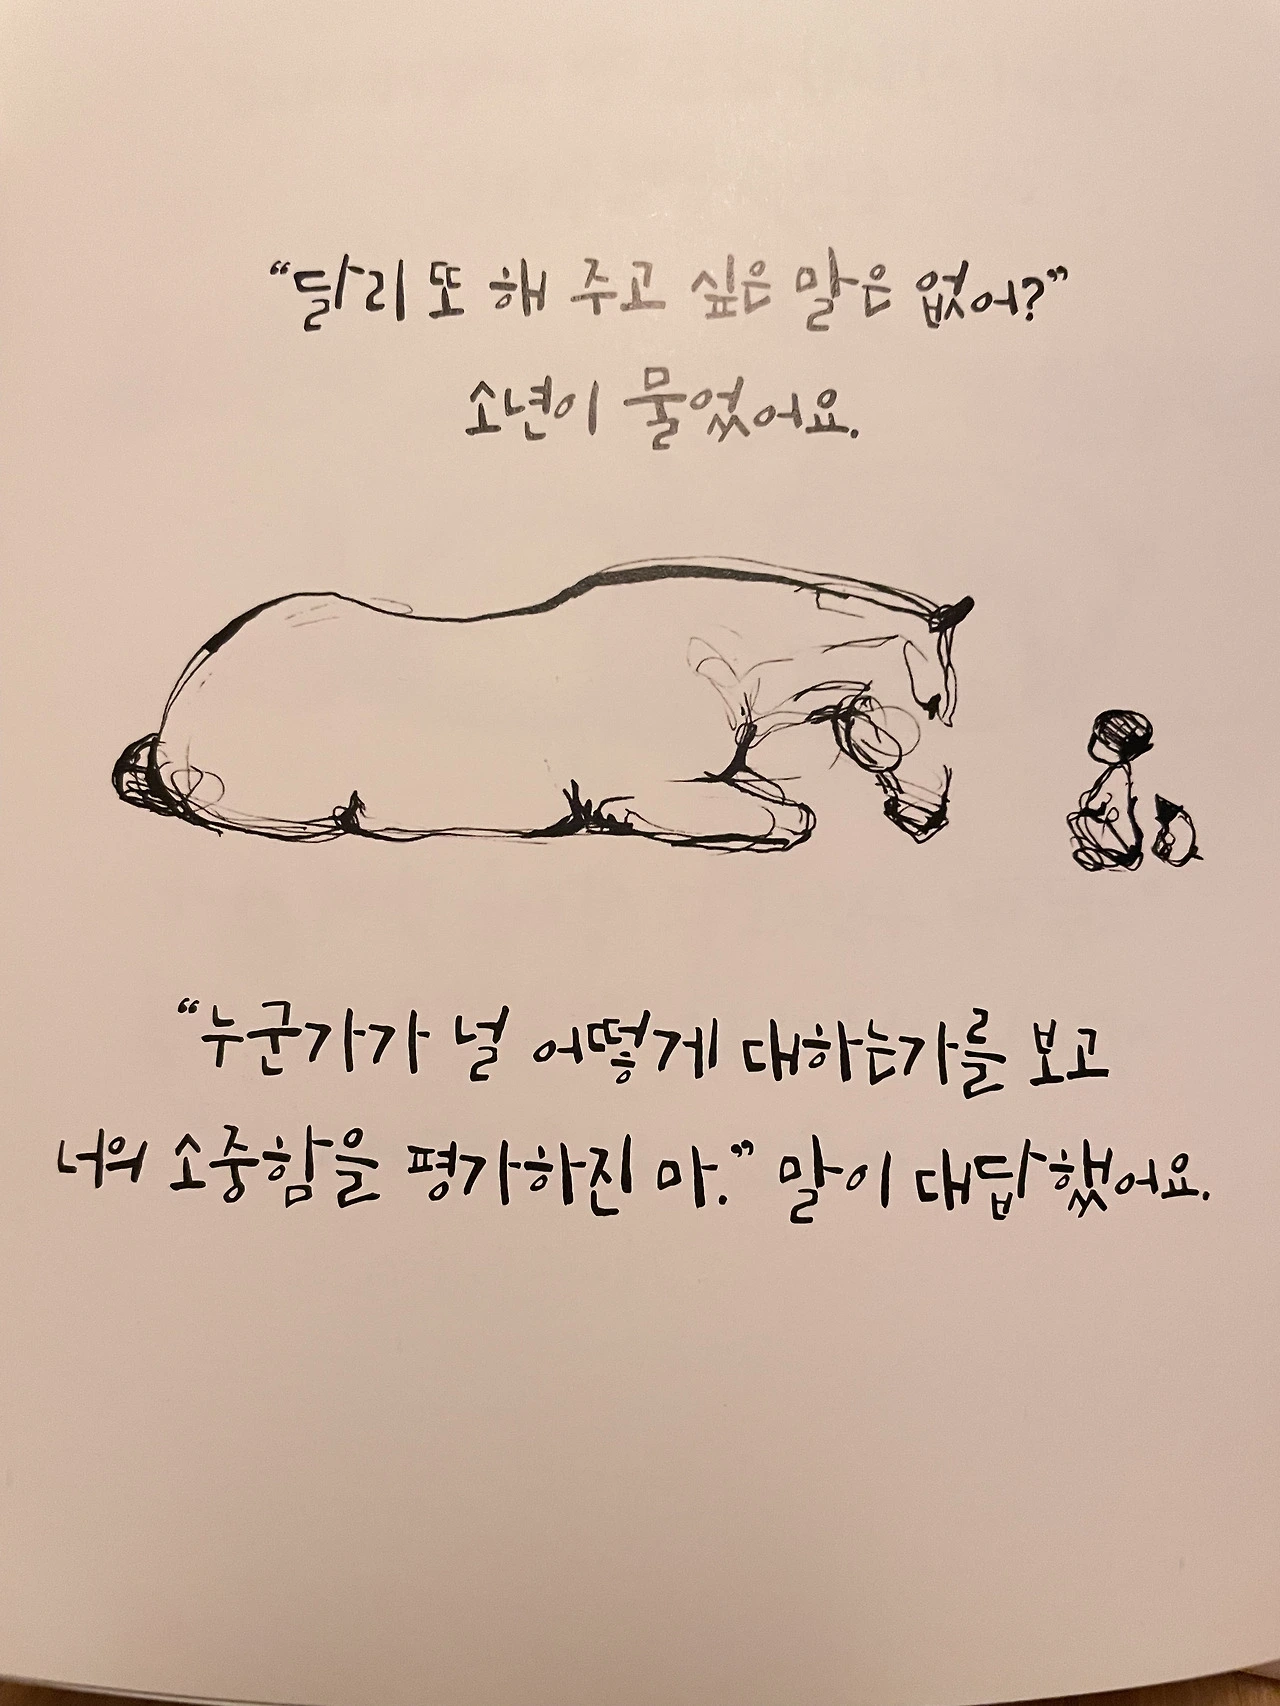 “달리 또 해 주고 싶은 말은 없어?”
소년이 물었어요.
“누군가가 널 어떻게 대하는가를 보고
너의 소중함을 평가하진 마.” 말이 대답했어요.